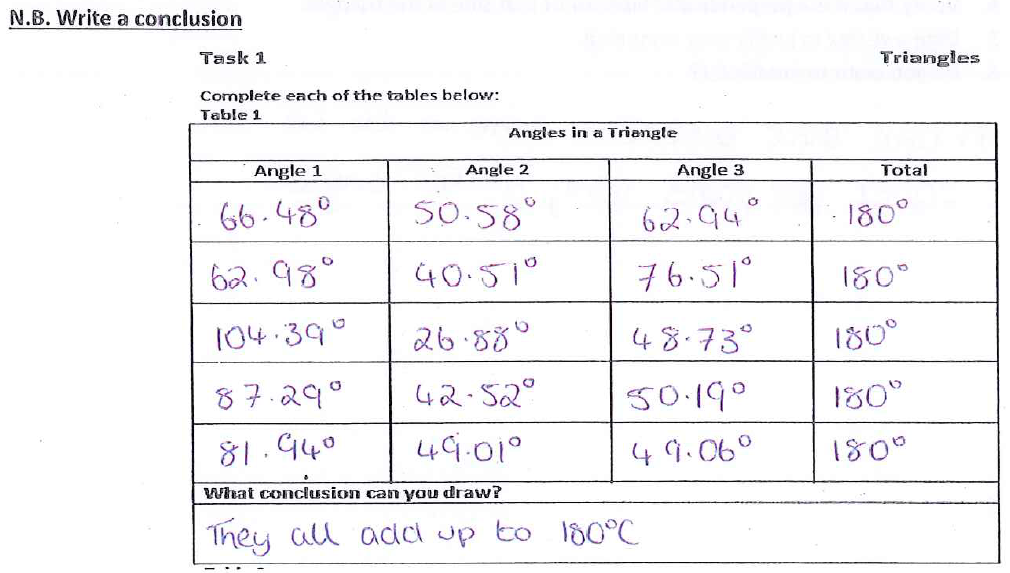 N.B. Write a conclusion
Task 1 Triangles
Complete each of the tables below:
Table 1
Angles in a Triangle
Angle 1 Angle 2 Angle 3 Total
66.48° 50.58° 62.94° 180°
62.98° 40.51° 76.51° 180°
104.39° 26.88° 48.73° 180°
87.29° 42.52° 50.19° 180°
81.94° 49.01° 49.06° 180°
What conclusion can you draw?
They all add up to 180°C